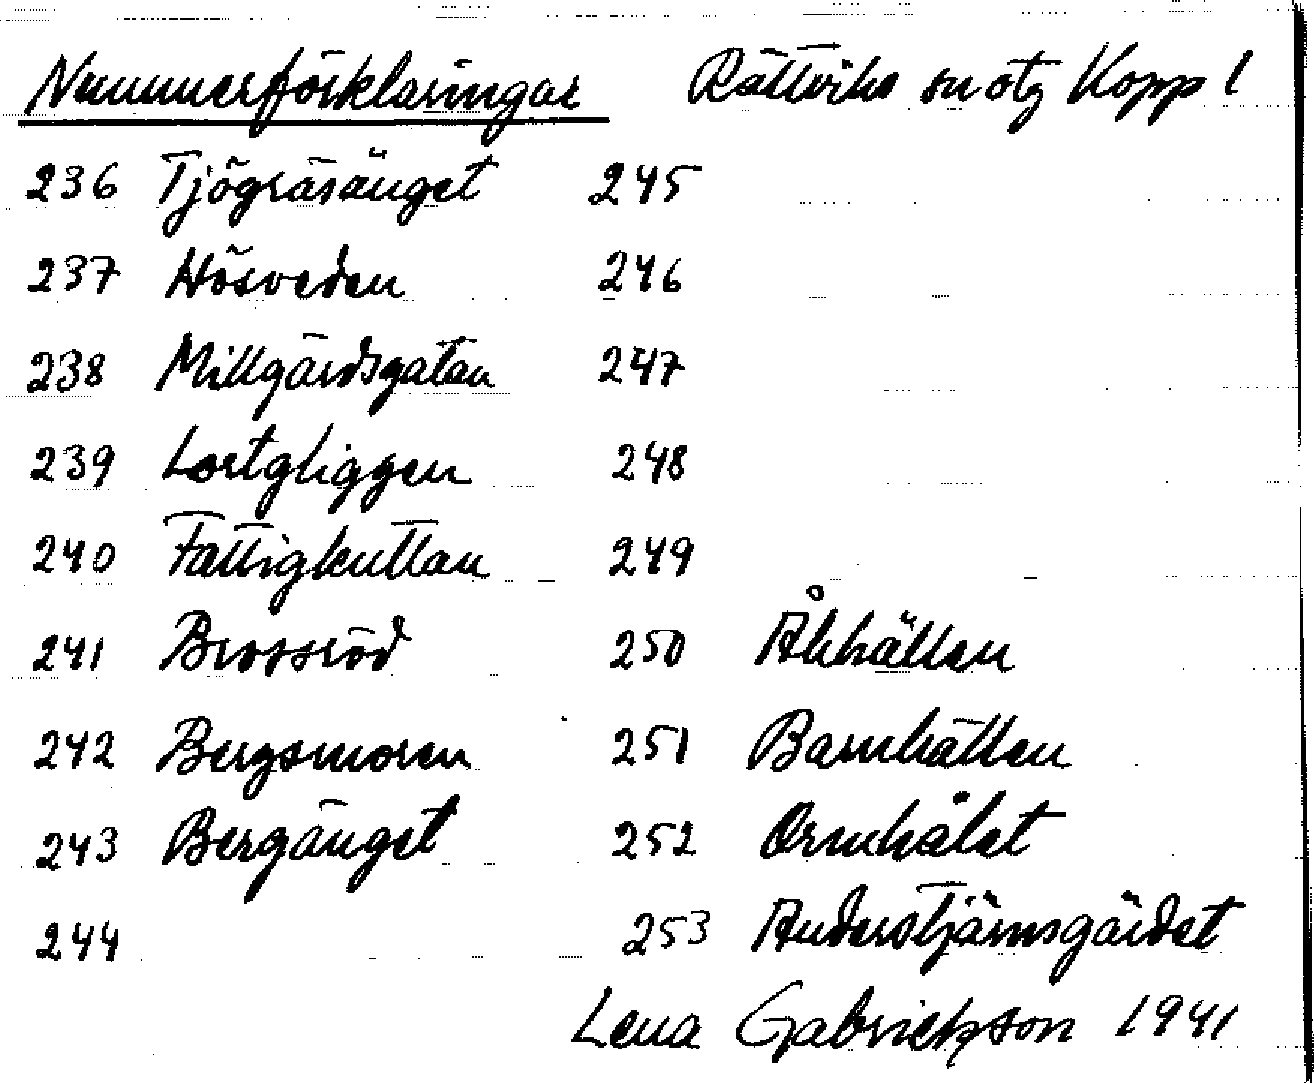 Nummerförklaringar Rättviks sn otg Kopp l
236 Tjögräsänget 245
237 Hösveden 246
238 Millgärdsgatan 247
239 Lortgliggen 248
240 Fattigkullan 249
241 Brossröd 250 Åkhällen
242 Bergsmoren 251 Barnhällen
243 Bergänget 252 Ormhålet
244 253 Anderstjärnsgärdet
Lena Gabrielsson 1941